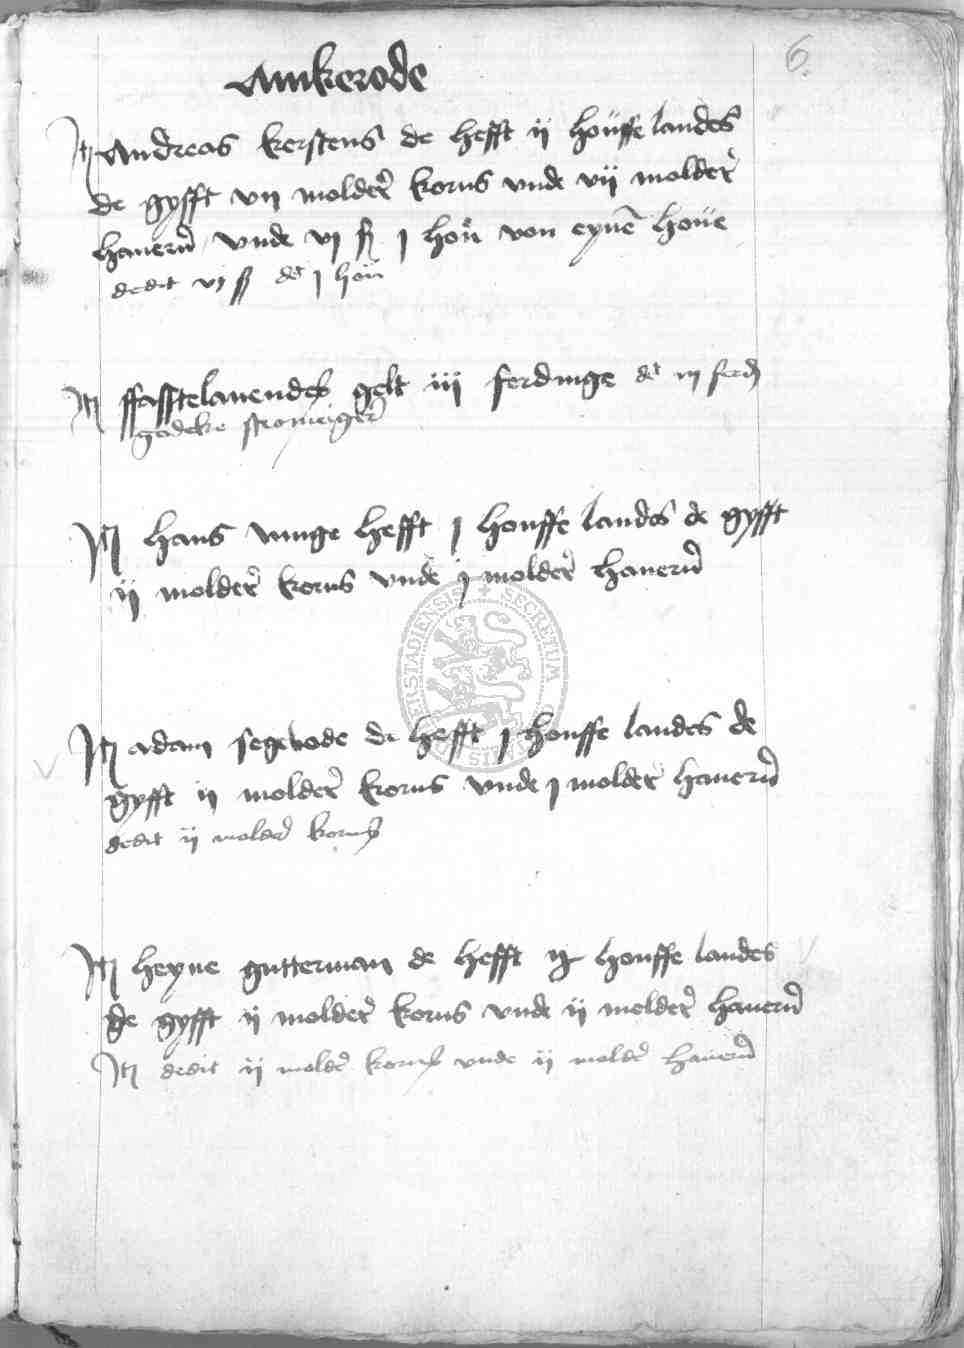 6
Ankerode
Itē Andreas kerstens de hefft ij houffe landes
de gyfft vij molder̄ korns vnde vij molder̄
hauern̄ vnde vj ß j hon̄ von eynē houe
dedit vj ß dt j hon̄
Itē ffastelauendes gelt iij ferdinge dt iij ferd
godeke stromeiger̄
Itē hans vnge hefft j houffe landes de gyfft
ij molder̄ korns vnde j molder̄ hauern̄
Itē adam segebode de hefft j houffe landes de
gyfft ij molder̄ korns vnde j molder̄ hauern̄
dedit ij molder̄ korns
Itē heyne gutterman de hefft ij houffe landes
de gyfft ij molder̄ korns vnde ij molder̄ hauern̄
Itē dedit ij molder̄ korns vnde ij molder̄ hauern̄
SECRETUM